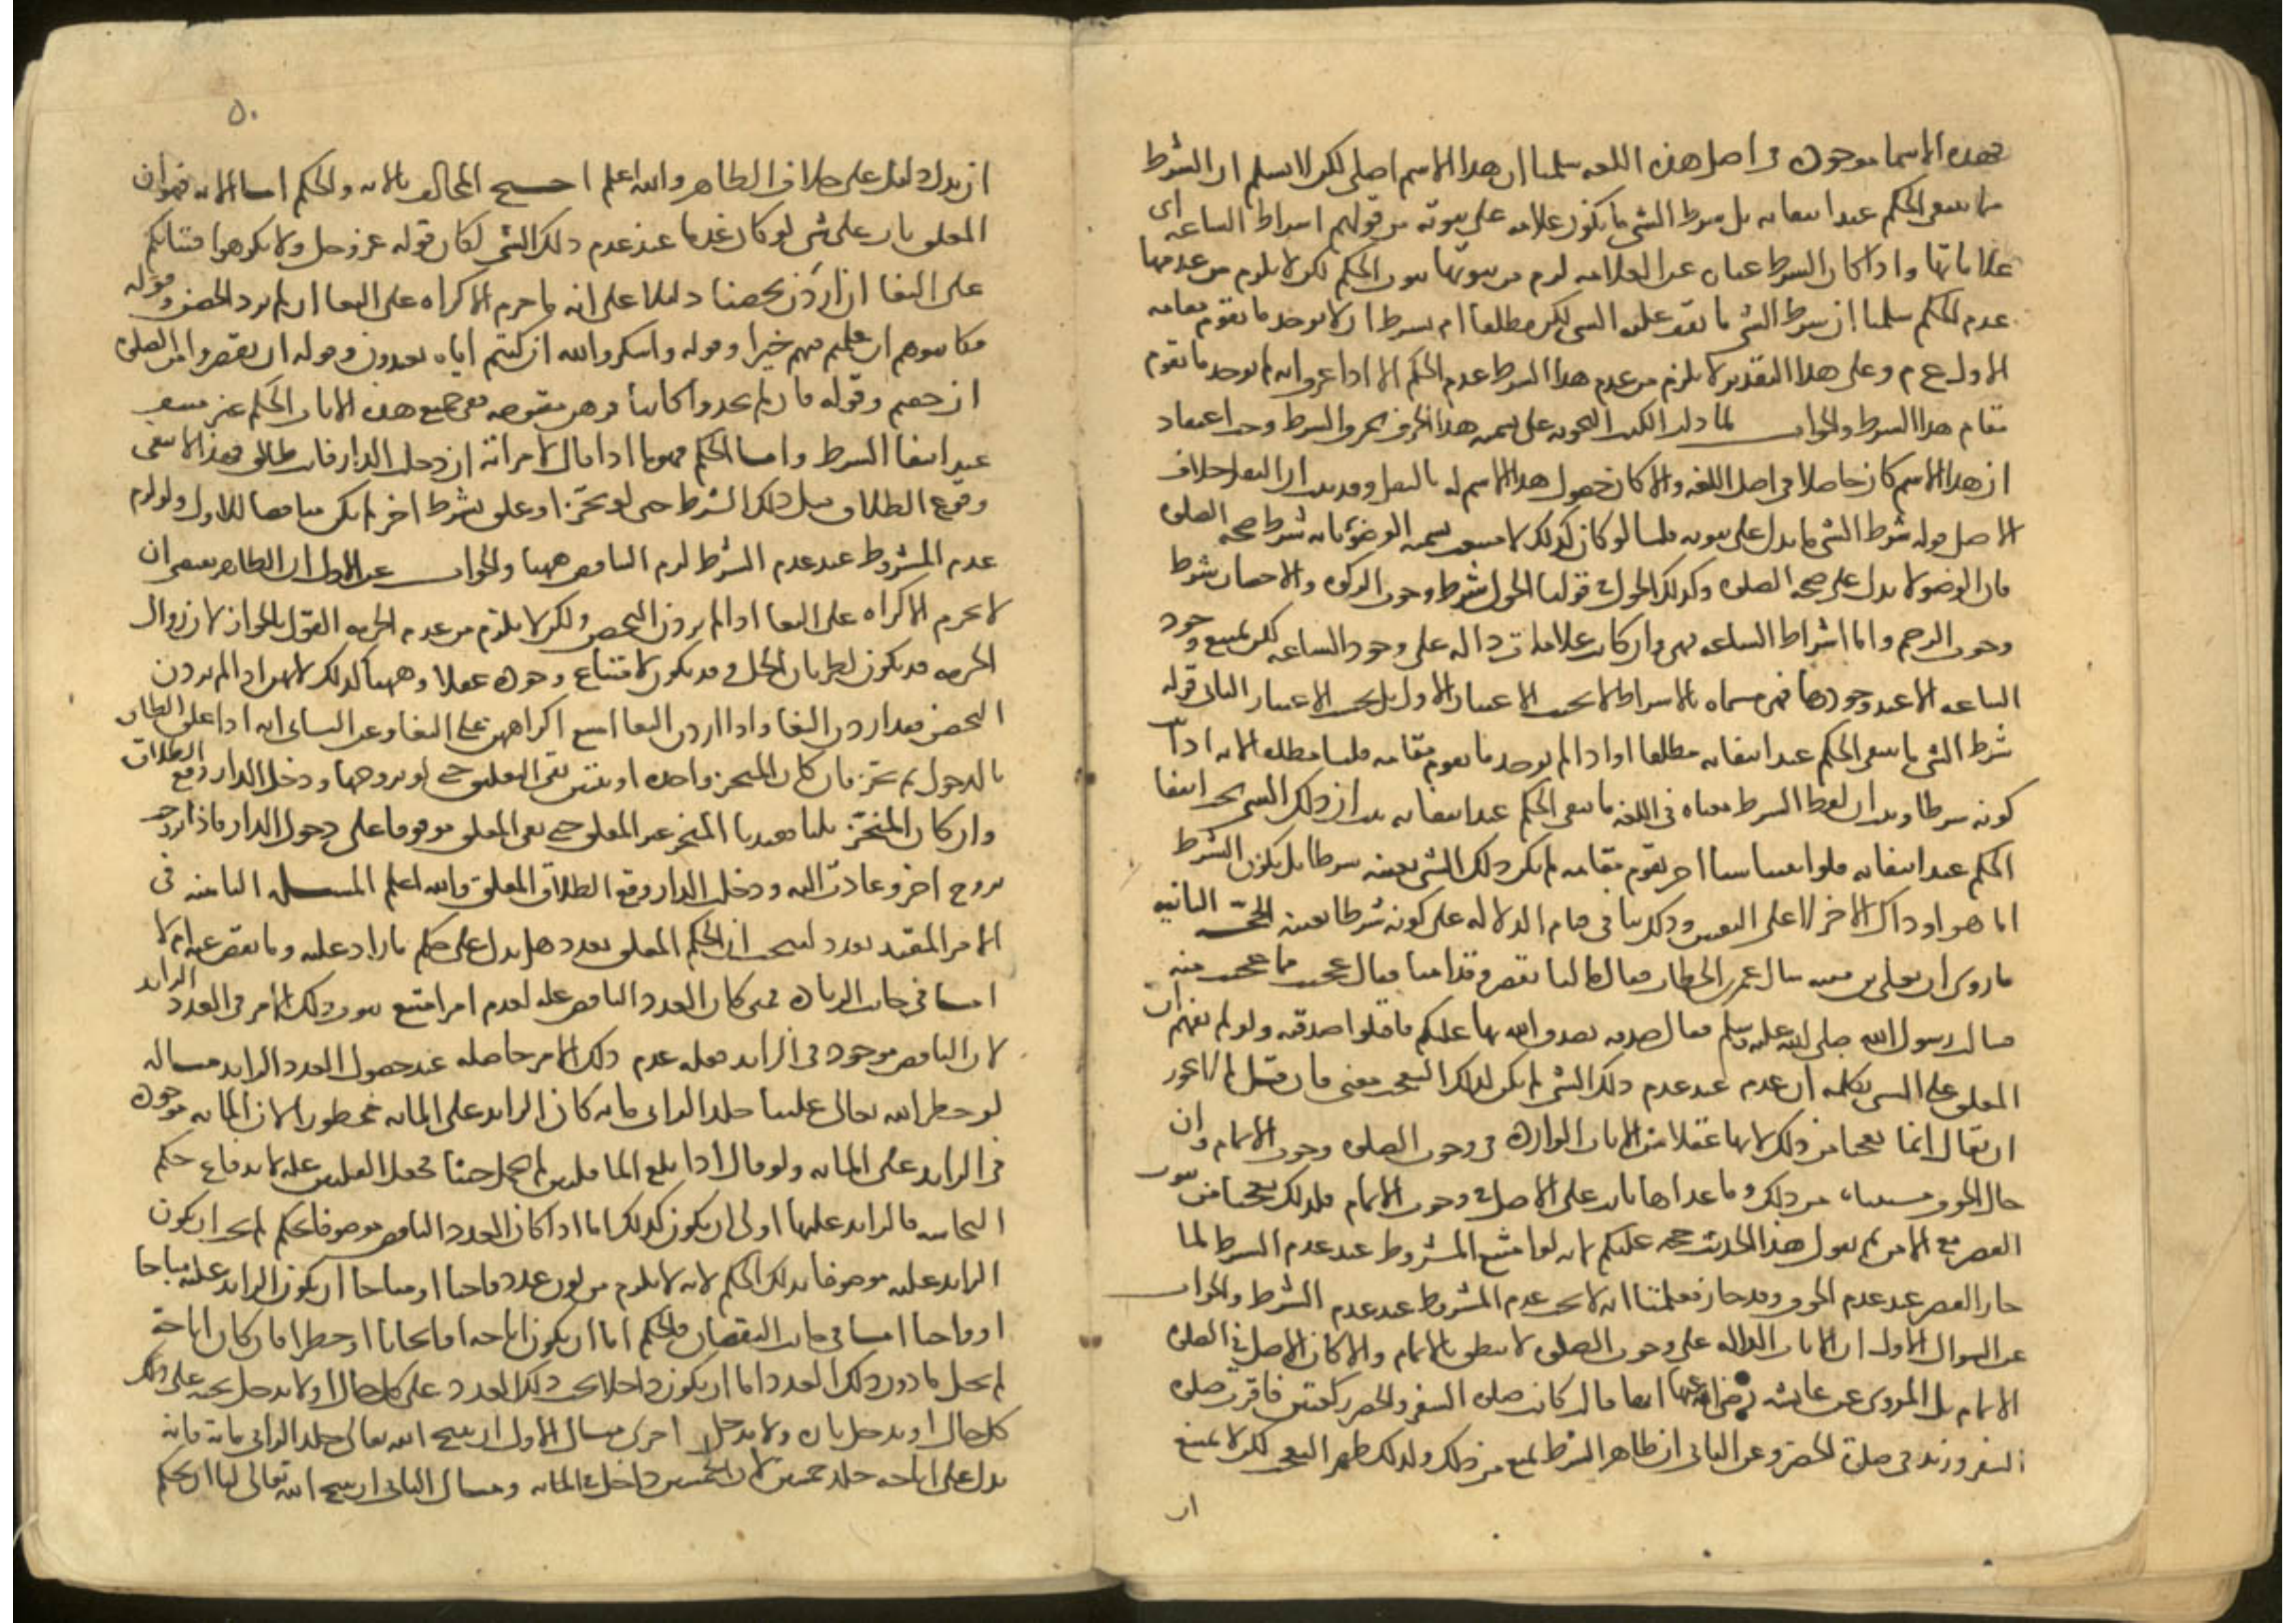 فهذه الاسما موجوده في اصل هذه اللغه سلمنا ان هذا الاسم اصلي لكن لا نسلم ان الشرط
ما ينتفي الحكم عند انتفائه بل شرط الشي ما يكون علامه على ثبوته من قولهم اشراط الساعه اى
علاماتها واذا كان الشرط عباره عن العلامه لزم من ثبوتها ثبوت الحكم لكن لا يلزم من عدمها
عدم الحكم سلمنا ان شرط الشي ما يقف عليه الشي لكن مطلقا ام بشرط ان لا يوجد ما يقوم مقامه
الاول ع م وعلى هذا التقدير لا يلزم من عدم هذا الشرط عدم الحكم الا اذا عرف انه لم يوجد ما يقوم
مقام هذا الشرط والجواب لما دلت الكتب النحويه على تسميه هذا الحرف بحرف الشرط وجب اعتقاد
ان هذا الاسم كان حاصلا في اصل اللغه والا كان حصول هذا الاسم له بالنقل وقد بينا ان النقل خلاف
الاصل قوله شرط الشي ما يدل على ثبوته قلنا لو كان كذلك لامتنعت تسميه الوضوء بانه شرط صحه الصلوه
فان الوضو لا يدل على صحه الصلوه وكذلك الحول في قولنا الحول شرط وجوب الزكوه والاحصان شرط
وجوب الرجم واما اشراط الساعه فهي وان كانت علامات داله على وجود الساعه لكن يمتنع وجود
الساعه الا عند وجودها فهي مسماه بالاشراط لا بحسب الاعتبار الاول بل بحسب الاعتبار الثاني قوله
شرط الشي ما ينتفي الحكم عند انتفائه مطلقا او اذا لم يوجد ما يقوم مقامه قلنا مطلقا لانه اذا ثبت
كونه شرطا وثبت ان لفظ الشرط معناه في اللغه ما ينتفي الحكم عند انتفائه ثبت ان ذلك الشي يجب انتفا
الحكم عند انتفائه فلو اثبتنا شيئا اخر يقوم مقامه لم يكن ذلك الشي بعينه شرطا بل يكون الشرط
اما هو او ذاك الاخر لا على التعيين وذلك ينافي قيام الدلاله على كونه شرطا بعينه الحجه الثانيه
ما روى ان يعلى بن منيه سال عمر بن الخطاب فقال ما لنا نقصر وقد امنا فقال عجبت مما عجبت منه
فسالت رسول الله صلى الله عليه وسلم فقال صدقه تصدق الله بها عليكم فاقبلوا صدقته ولو لم يفهم ان
المعلق على الشي بكلمه ان عدم عند عدم ذلك الشي لم يكن لذلك التعجب معنى فان قيل لم لا يجوز
ان يقال انما تعجبا من ذلك لانهما عقلا من الايات الوارده في وجوب الصلوه وجوب الاتمام وان
حال الخوف مستثناه من ذلك وما عداها ثابت على الاصل في وجوب الاتمام فلذلك تعجبا من ثبوت
القصر مع الامن ثم نقول هذا الحديث حجه عليكم لانه لو امتنع المشروط عند عدم الشرط لما
جاز القصر عند عدم الخوف وقد جاز فعلمنا انه لا يجب عدم المشروط عند عدم الشرط والجواب
عن السوال الاول ان الايات الداله على وجوب الصلوه لا تنطق بالاتمام والا كان الاصل في الصلوه
الاتمام بل المروى عن عايشه رضي الله عنها انها قالت كانت صلوه السفر والحضر ركعتين فاقرت صلوه
السفر وزيد في صلوه الحضر وعن الثاني ان ظاهر الشرط يمنع من ذلك ولذلك ظهر التعجب لكن لا يمتنع
ان
٥٠
ان يدل دليل على خلاف الظاهر والله اعلم احتج المخالف بالايه والحكم اما الايه فهو ان
المعلق بان على شي لو كان عدما عند عدم ذلك الشي لكان قوله عز وجل ولا تكرهوا فتياتكم
على البغا ان اردن تحصنا دليلا على انه لم يحرم الاكراه على البغا ان لم يردن التحصن وقوله
فكاتبوهم ان علمتم فيهم خيرا وقوله واشكروا لله ان كنتم اياه تعبدون وقوله ان تقصروا من الصلوه
ان خفتم وقوله فان لم تجدوا كاتبا فرهن مقبوضه ففي جميع هذه الايات الحكم غير منتف
عند انتفا الشرط واما الحكم فهو ما اذا قال لامراته ان دخلت الدار فانت طالق فهذا لا ينفي
وقوع الطلاق قبل ذلك الشرط حتى لو نجز او علق بشرط اخر لم يكن مناقضا للاول ولو لزم
عدم المشروط عند عدم الشرط لزم التناقض ههنا والجواب عن الاول ان الظاهر يقتضي ان
لا يحرم الاكراه على البغا اذا لم يردن التحصن ولكن لا يلزم من عدم الحرمه القول بالجواز لان زوال
الحرمه قد يكون لطريان الحل وقد يكون لامتناع وجوده عقلا وههنا كذلك لانهن اذا لم يردن
التحصن فقد اردن البغا واذا اردن البغا امتنع اكراههن على البغا وعن الثاني انه اذا علق الطلاق
بالدخول ثم نجز فان كان المنجز واحده او ثنتين بقي التعليق حتى لو تزوجها ودخل الدار وقع الطلاق
وان كان المنجز ثلثا فعندنا المنجز غير المعلق حتى بقي المعلق موقوفا على دخول الدار فاذا تزوجت
بزوج اخر وعادت اليه ودخلت الدار وقع الطلاق المعلق والله اعلم المسله الثامنه في
الامر المقيد بعدد البحث ان الحكم المعلق بعدد هل يدل على حكم ما زاد عليه وما نقص عنه ام لا
اما في جانب الزياده فمتى كان العدد الناقص عله لعدم امر امتنع ثبوت ذلك الامر في العدد الزايد
لان الناقص موجود في الزايد فعله عدم ذلك الامر حاصله عند حصول العدد الزايد مثاله
لو حظر الله تعالى علينا جلد الزاني مايه كان الزايد على المايه محظورا لان المايه موجوده
في الزايد على المايه ولو قال اذا بلغ الما قلتين لم يحمل خبثا فجعل القلتين عله لاندفاع حكم
النجاسه فالزايد عليها اولى ان يكون كذلك اما اذا كان العدد الناقص موصوفا بحكم لم يجب ان يكون
الزايد عليه موصوفا بذلك الحكم لانه لا يلزم من كون عدد واجبا او مباحا ان يكون الزايد عليه مباحا
او واجبا اما في جانب النقصان فالحكم اما ان يكون اباحه او ايجابا او حظرا فان كان اباحه
لم يخل ما دون ذلك العدد اما ان يكون داخلا تحت ذلك العدد على كل حال او لا يدخل تحته على
كل حال او يدخل تاره ولا يدخل اخرى مثال الاول ان يبيح الله تعالى جلد الزاني مائة فانه
يدل على اباحه جلد خمسين لان الخمسين داخل في المايه ومثال الثاني ان يبيح الله تعالى لنا ان نحكم